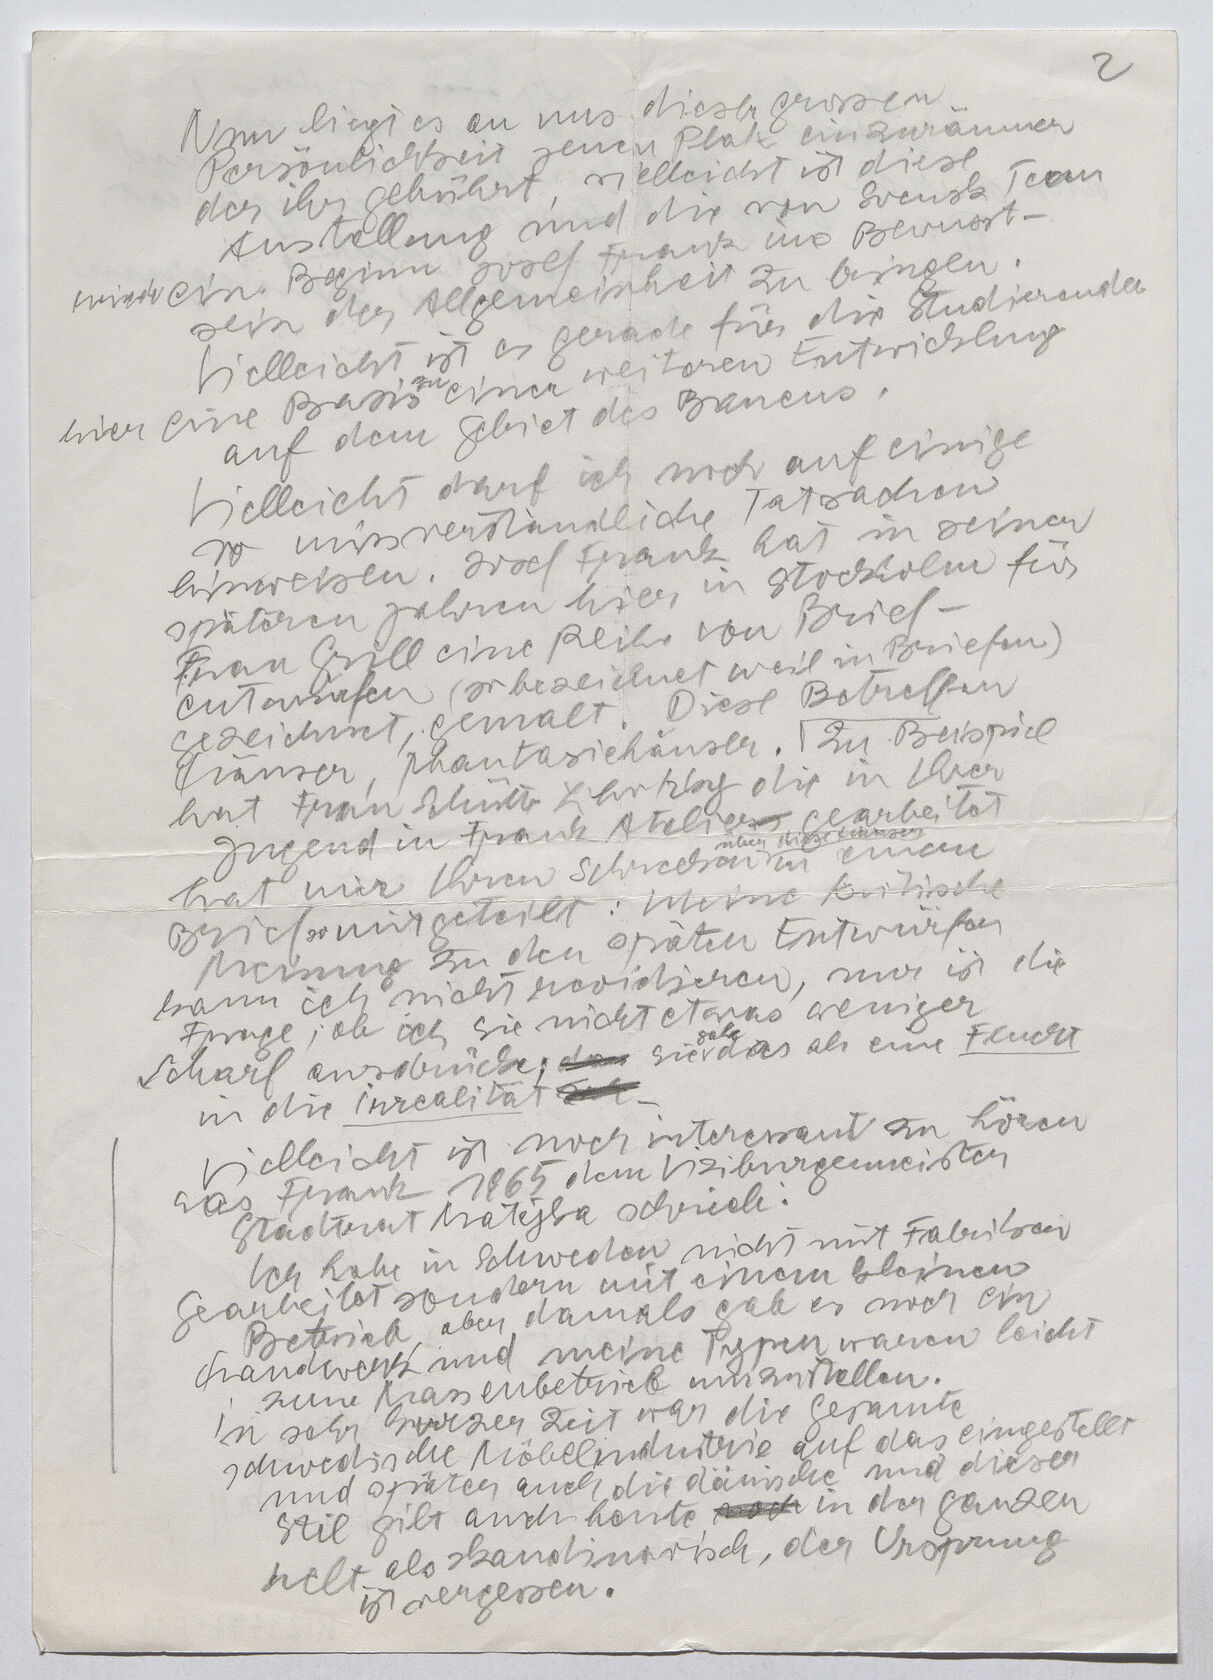 2
Nun liegt es an uns dieser grossen
Persönlichkeit jenen Platz einzuräumen
der ihr gebührt, vielleicht ist diese
Ausstellung und die von Svensk Team
wieder ein Beginn Josef Frank ins Bewusst-
sein der Allgemeinheit zu bringen.
Vielleicht ist es gerade für die Studierenden
hier eine Basis zu einer weiteren Entwicklung
auf dem Gebiet des Bauens.
Vielleicht darf ich noch auf einige
so missverständliche Tatsachen
hinweisen. Josef Frank hat in seinen
späteren Jahren hier in Stockholm für
Frau Grill eine Reihe von Brief-
entwürfen (so bezeichnet weil in Briefen)
gezeichnet, gemalt. Diese Betreffen
Häuser, Phantasiehäuser. Zu Beispiel
hat Frau Schütte Lihotzky die in Ihrer
Jugend in Frank Atelier gearbeitet
hat mir Ihren Schrecken über diese Häuser in einem
Brief so mitgeteilt: Meine kritische
Meinung zu den späten Entwürfen
kann ich nicht revidieren, nur ist die
Frage, ob ich sie nicht etwas weniger
scharf ausdrücke; sehe das als eine Flucht
in die Irrealität
Vielleicht ist noch interessant zu hören
was Frank 1965 dem Vizibürgemeister
Stadtrat Matejka schrieb:
Ich habe in Schweden nicht mit Fabriken
gearbeitet sondern mit einem kleinen
Betrieb, aber damals gab es noch ein
Handwerk und meine Typen waren leicht
zum Massenbetrieb umzustellen.
In sehr kurzer Zeit war die gesamte
schwedische Möbelindustrie auf das eingestellt
und später auch die dänische und dieser
Stil gilt auch heute noch in der ganzen
Welt als skandinavisch, der Ursprung
ist vergessen.